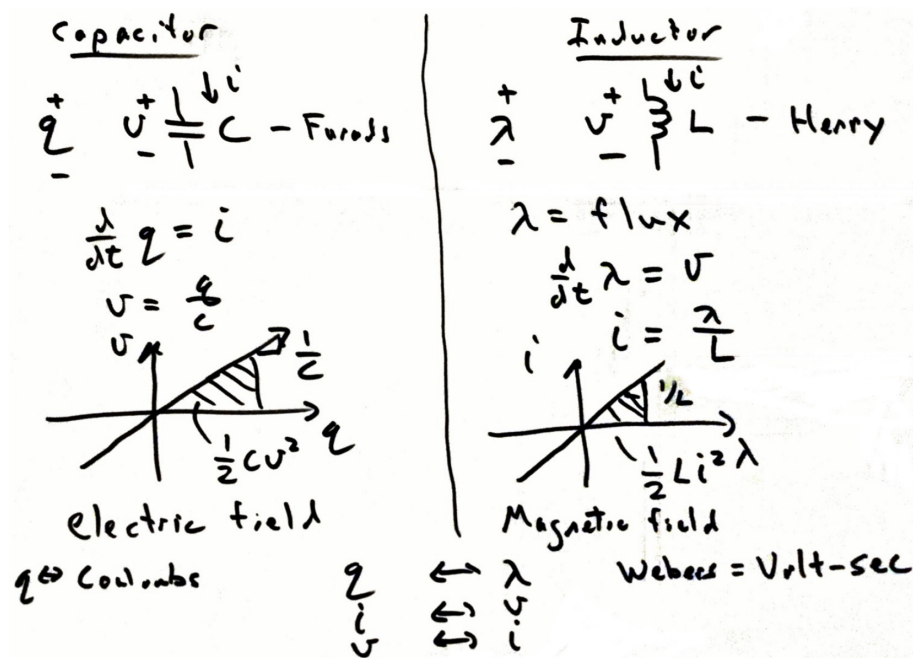 Capacitor
+ + ↓i
q v C - Farads
- -
d/dt q = i
v = q/c
v
1/C
q
1/2 Cv²
electric field
q ↔ Coulombs
Inductor
+ + ↓i
λ v L - Henry
- -
λ = flux
d/dt λ = v
i = λ/L
i
1/L
λ
1/2 Li²
Magnetic field
Webers = Volt-sec
q ↔ λ
i ↔ v
v ↔ i